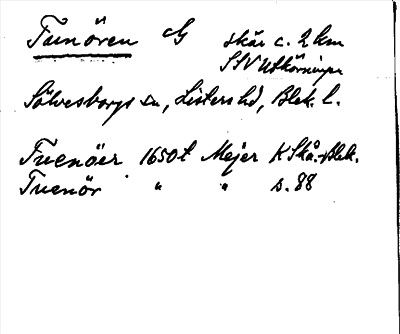 Tunören G skär c. 2 km
SSV Utkörningen
Sölvesborgs sn, Listers hd, Blek. l.
Tuenöer 1650t Mejer K Skå.-Blek.
Tuenör " " s. 88